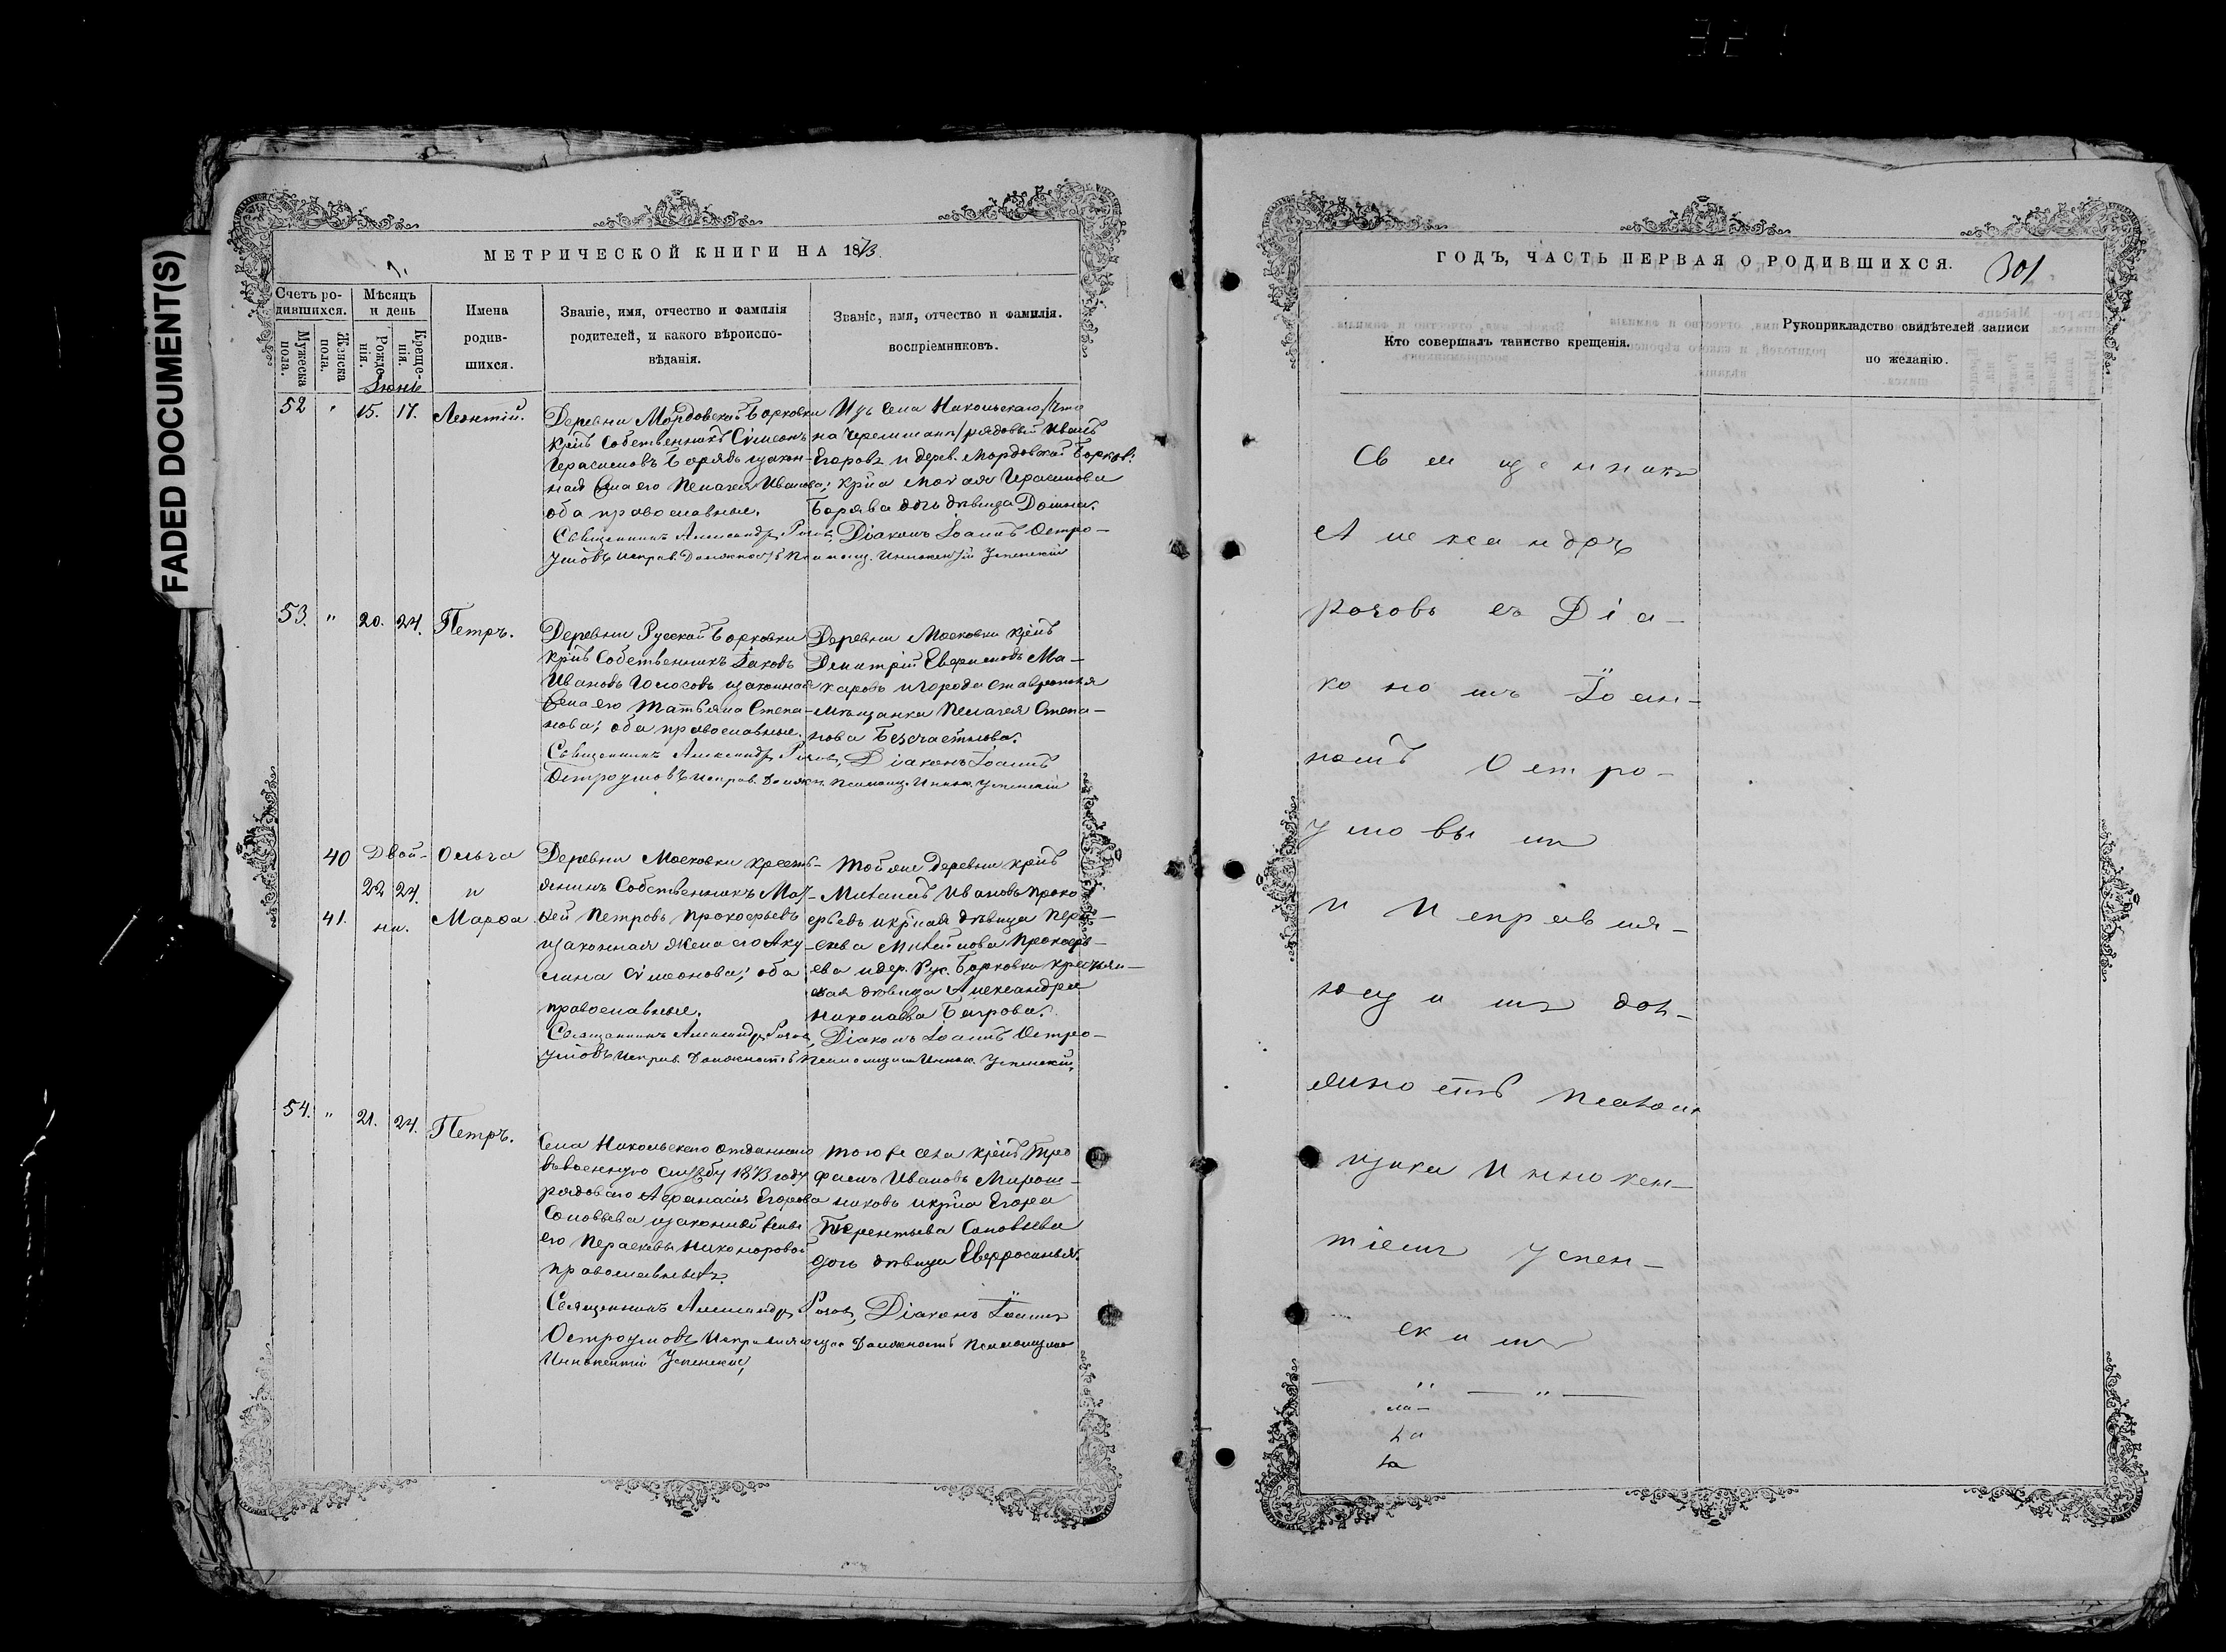 FADED DOCUMENT(S)
МЕТРИЧЕСКОЙ КНИГИ НА 1873
Счетъ ро-
дившихся.
Мужеска
пола.
Женска
пола.
Мѣсяцъ
и день
Рожде-
нія.
Креще-
нія.
Имена
родив-
шихся.
Званіе, имя, отчество и фамилія
родителей, и какого вѣроиспо-
вѣданія.
Званіе, имя, отчество и фамилія.
воспріемниковъ.
Іюнь
52 " 15. 17. Леонтій.
Деревни Мордовской Борковки
Крнъ Собственникъ Сѵмеонъ
Герасимовъ Борядъ и закон-
ная жена его Пелагея Иванова;
оба православные.
Изъ села Никольскаго /что
на Черемшанѣ/ рядовый Иванъ
Егоровъ и дерев. Мордовской Борков:
крна Герасимова
дочь дѣвица Домна.
Священникъ Александръ Розовъ, Діаконъ Іоаннъ Остро-
умовъ Исправ. Должность Псаломщ. Иннокентій Успенскій
53. " 20. 24. Петръ.
Деревни Русской Борковки
крнъ Собственникъ Іаковъ
Ивановъ Голосовъ и законная
жена его Татьяна Степа-
нова; оба православные.
Деревни Московки крнъ
Димитрій Ма-
каровъ и города Ставрополя
мѣщанка Пелагея Степа-
нова Безсчастнова.
Священникъ Александръ Розовъ, Діаконъ Іоаннъ
Остроумовъ Исправ. Должн. Псаломщ. Иннок. Успенскій
40 Двой- Ольга
22 24. и
41. ни. Марѳа.
Деревни Московки кресть-
янинъ Собственникъ Мат-
ѳей Петровъ Прокофьевъ
и законная жена его Аку-
лина Сѵмеонова; оба
православные.
Той же Деревни крнъ
Михаилъ Ивановъ Проко
фьевъ и крная дѣвица Пара-
скева Михайлова Прокофь-
ева и дер. Рус. Борковки крестьян-
ская дѣвица Александра
Николаева Багрова.
Священникъ Александръ Розовъ, Діаконъ Іоаннъ Остро-
умовъ Исправ. Должность Псаломщика Иннок. Успенскій.
54. " 21. 24. Петръ.
Села Никольскаго отданнаго
въ военную службу 1873 году
рядоваго Афанасія Егорова
Соловьева и законной жены
его Параскевы Никоноровой
православныхъ.
Того же села крнъ Тро
фимъ Ивановъ Мирош-
никовъ и крна Егора
Терентьева Соловьева
дочь дѣвица Евфросинья.
Священникъ Александръ Розовъ, Діаконъ Іоаннъ
Остроумовъ Исправляющій Должность Псаломщика
Иннокентій Успенскій,
ГОДЪ, ЧАСТЬ ПЕРВАЯ О РОДИВШИХСЯ.
301
Кто совершалъ таинство крещенія.
Рукоприкладство свидѣтелей записи
по желанію.
Священникъ
Александръ
Розовъ съ Діа-
кономъ Іоан-
номъ Остро-
умовымъ
и Исправля-
ющимъ дол-
жность Псалом
щика Иннокен-
тіемъ Успен-
скимъ